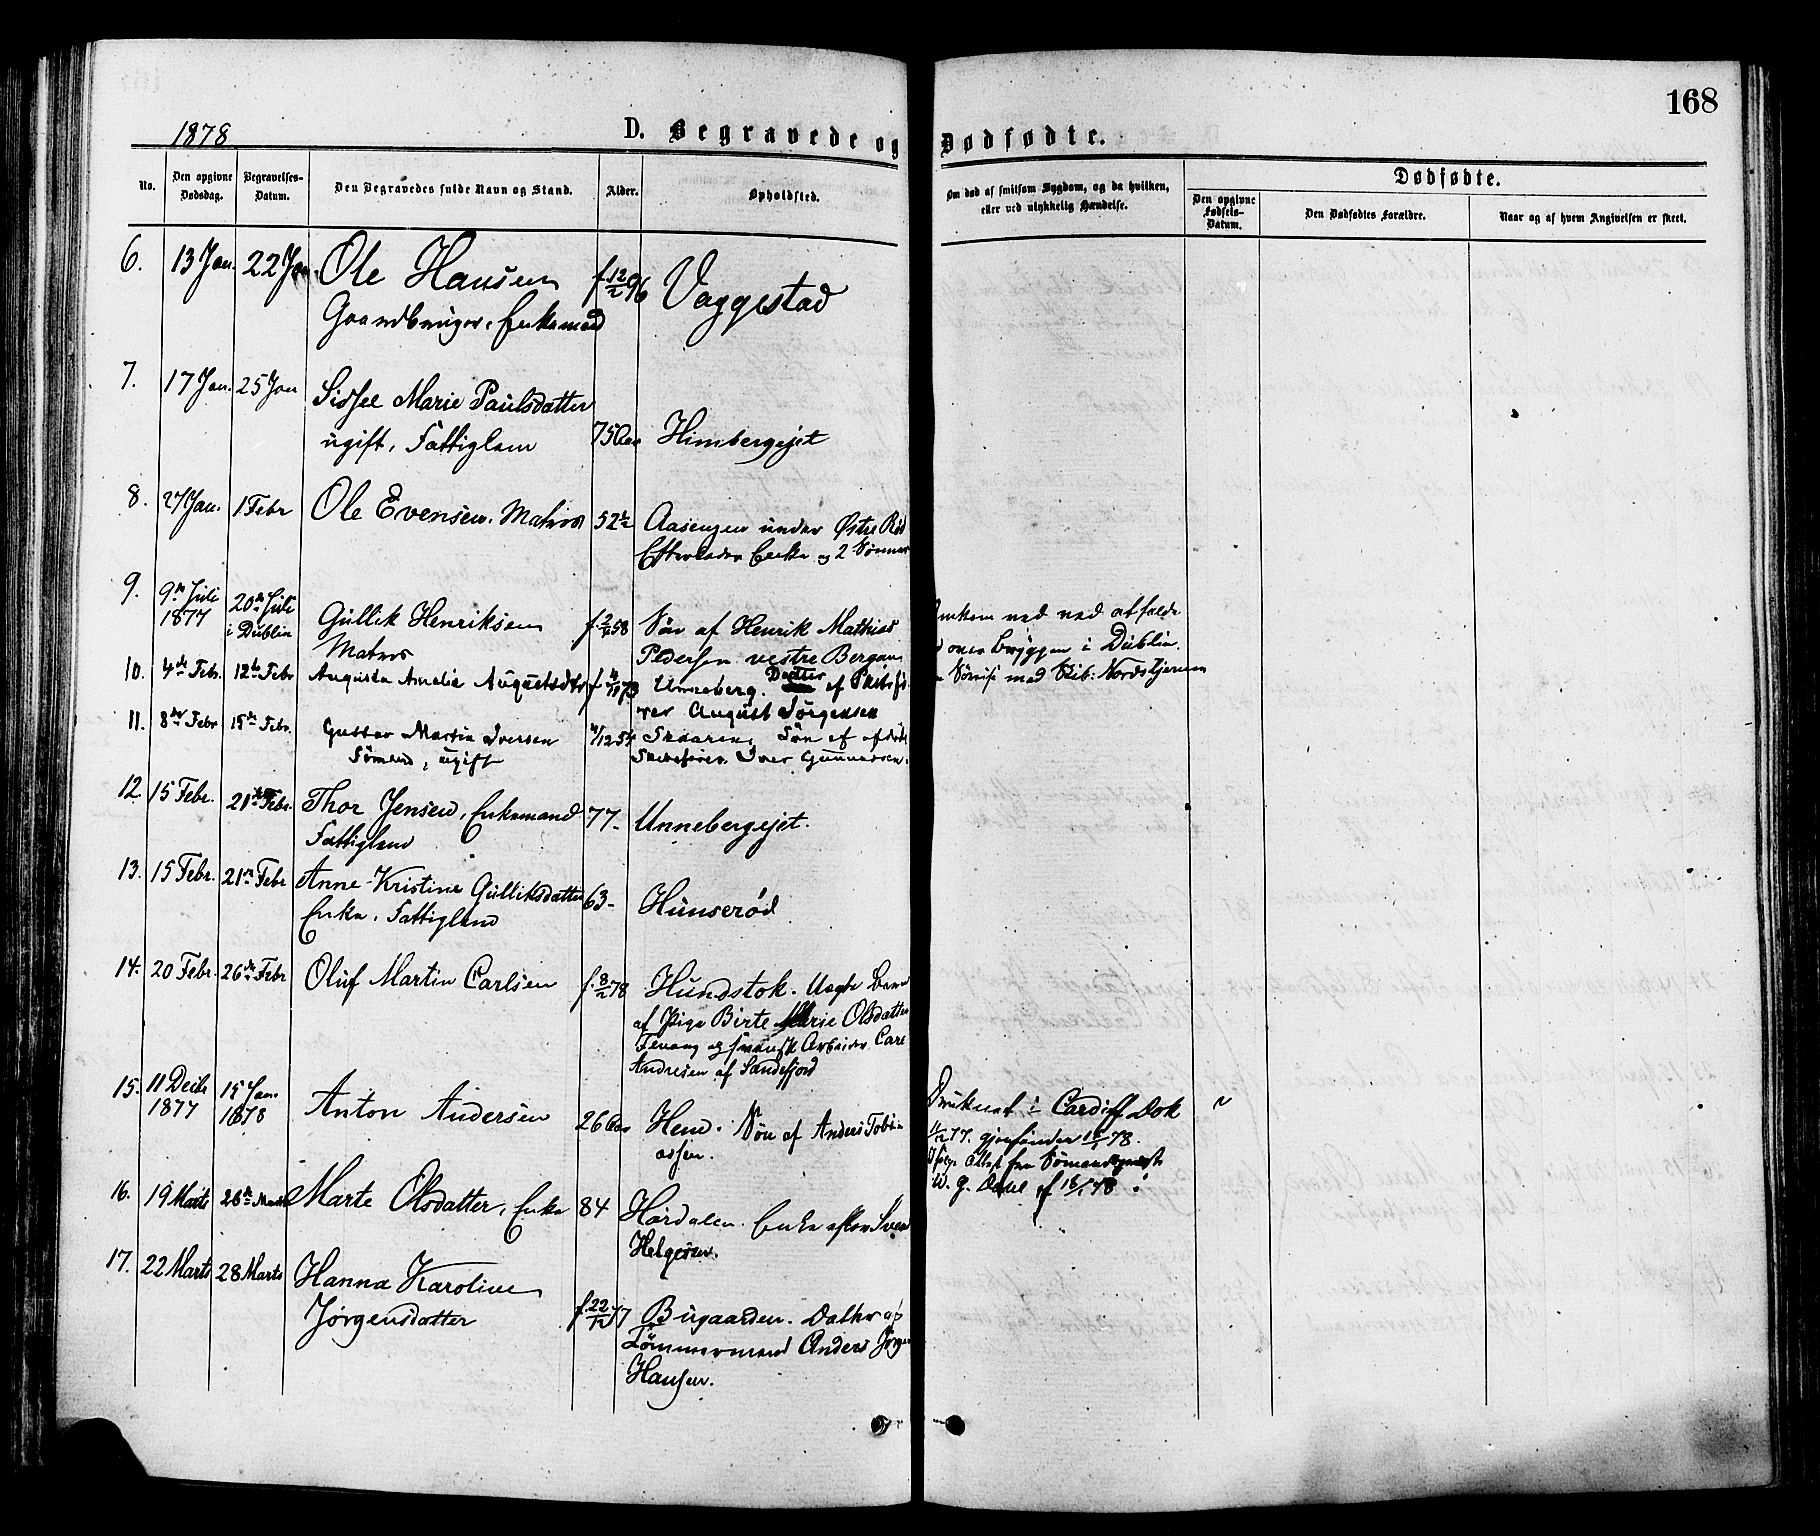 168
1878
D. Begravede og Dødfødte.
No.
Den opgivne Dødsdag.
Begravelses-Datum.
Den Begravedes fulde Navn og Stand.
Alder.
Opholdsted.
Om død af smitsom Sygdom, og da hvilken, eller ved ulykkelig Hændelse.
Dødfødte.
Den opgivne Fødsels-Datum.
Den Dødfødtes Forældre.
Naar og af hvem Angivelsen er skeet.
6. 13 Jan. 22 Jan. Ole Hansen f. 12/2 96 Vaggestad
Gaardbruger, Enkemand
7. 17 Jan. 25 Jan Sissel Marie Paulsdatter
ugift, Fattiglem 75 Aar Himbergejet
8. 27 Jan. 1 Febr Ole Evensen, Matros 52 ½ Aasengen under Østre Rød
Efterlader Enke og 2 Sønner
9. 9de Juli 1877 20de Juli i Dublin Gullik Henriksen f. 2/4 58 Søn af Henrik Mathias
Matros Pedersen vestre Bergan
Omkom ved ned at falde
over Bryggen i Dublin
Sørejse med Skib: Nordstjernen
10. 4de Febr. 12te Febr Augusta Amalie Augustsdtr Unneberg. Datter af Skibsfø-
rer August Jørgensen
11. 8de Febr 15de Febr. Gustav Martin Iversen 4/12 54 Skaaren, Søn af afdøde
Sømand, ugift Skibsfører Iver Gunnarsen.
12. 15 Febr. 21de Febr. Thor Jensen, Enkemand 77- Unnebergejet.
Fattiglem
13. 15 Febr. 21de Febr Anne Kristine Gulliksdatter 63- Hunserød
Enke, Fattiglem
14. 20 Febr. 26de Febr Oluf Martin Carlsen f. 8/2 78 Hundstok. Uægte Barn
af Pige Birte Marie Olsdatter
Fevang og svensk Arbeider Carl
Andresen af Sandefjord
15. 11 Decbr 1877 15 Jan. 1878 Anton Andersen 26 Aar Hem. Søn af Anders Tobi-
assen.
Druknet i Cardiff Dok
11/12 77. gjenfunden 15/1 78.
Attest fra Sømandsprest
W. G. Dahl af 16/1 78.
16. 19 Marts 26de Marts Marte Olsdatter, Enke 84 Hørdalen. Enke efter Sven
Helgesen.
17. 22 Marts 28 Marts Hanna Karoline
Jørgensdatter f. 22/12 77 Bugaarden. Datter af
Tømmermand Anders Jørgen
Hansen.